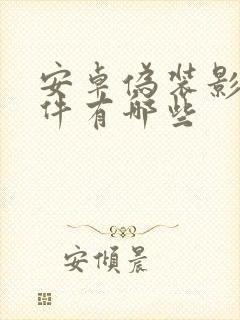 安卓伪装影
件有哪些
安傾晨